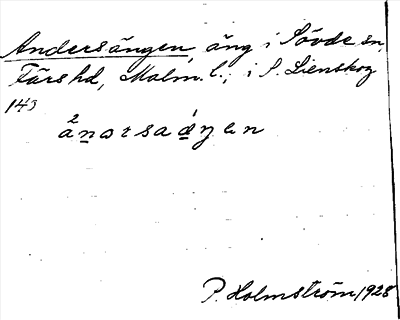 Andersängen, äng i Sövde sn,
Färs hd, Malm. l.; i S. Lienskog
143
P. Holmström 1928